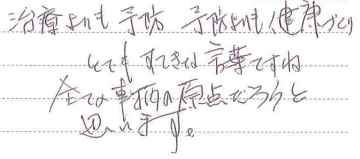 治療よりも予防 予防よりも健康づくり
とても すてきな言葉ですね
全ての事柄の原点だろうと
思います。